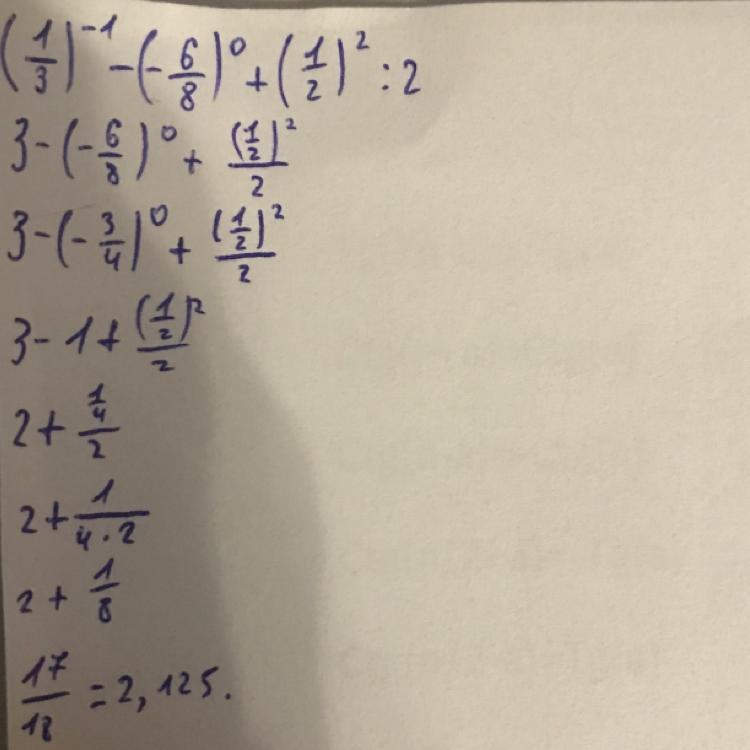 (1/3)^-1 - (-6/8)^0 + (1/2)^2 : 2
3 - (-6/8)^0 + (1/2)^2/2
3 - (-3/4)^0 + (1/2)^2/2
3 - 1 + (1/2)^2/2
2 + 1/4/2
2 + 1/4·2
2 + 1/8
17/18 = 2,125.